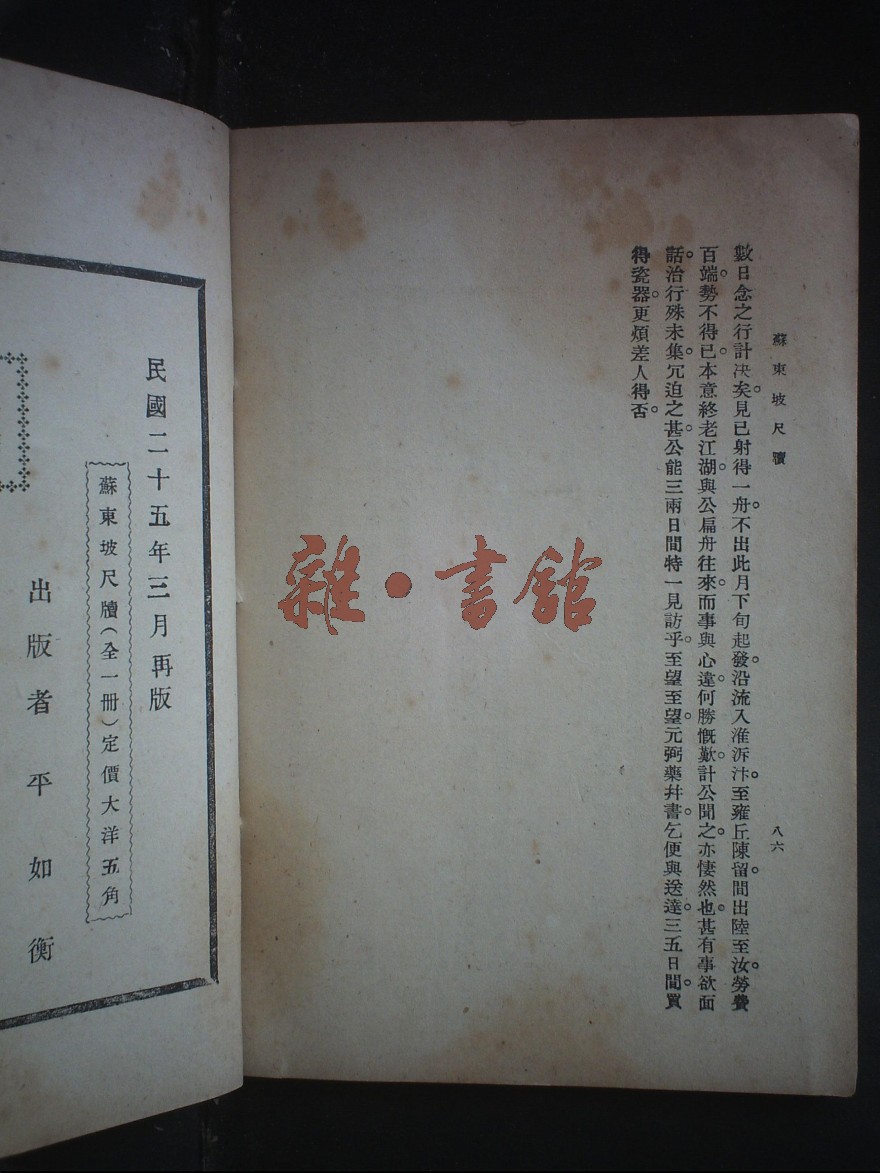 蘇東坡尺牘
八六
數日念之行計决矣。見已射得一舟。不出此月下旬起發。沿流入淮泝汴。至雍丘陳留。間出陸至汝。勞費
百端。勢不得已。本意終老江湖。與公扁舟往來。而事與心違。何勝慨歎。計公聞之。亦悽然也。甚有事欲面
話。治行殊未集。冗迫之甚。公能三兩日間特一見訪乎。至望至望。元弼藥幷書。乞便與送達。三五日間。買
得瓷器。更煩差人得否。
民國二十五年三月再版
蘇東坡尺牘(全一冊)定價大洋五角
出版者平如衡
雜·書館